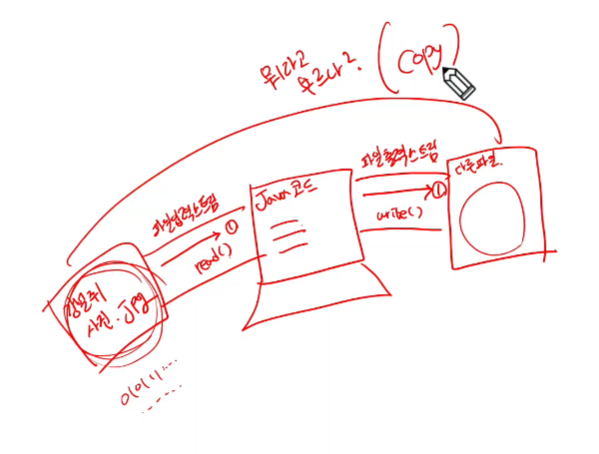 뭐라고
부르나?
(copy)
파일입력스트림
①
read()
Java 코드
파일출력스트림
①
write()
다른파일.
사진.jpg